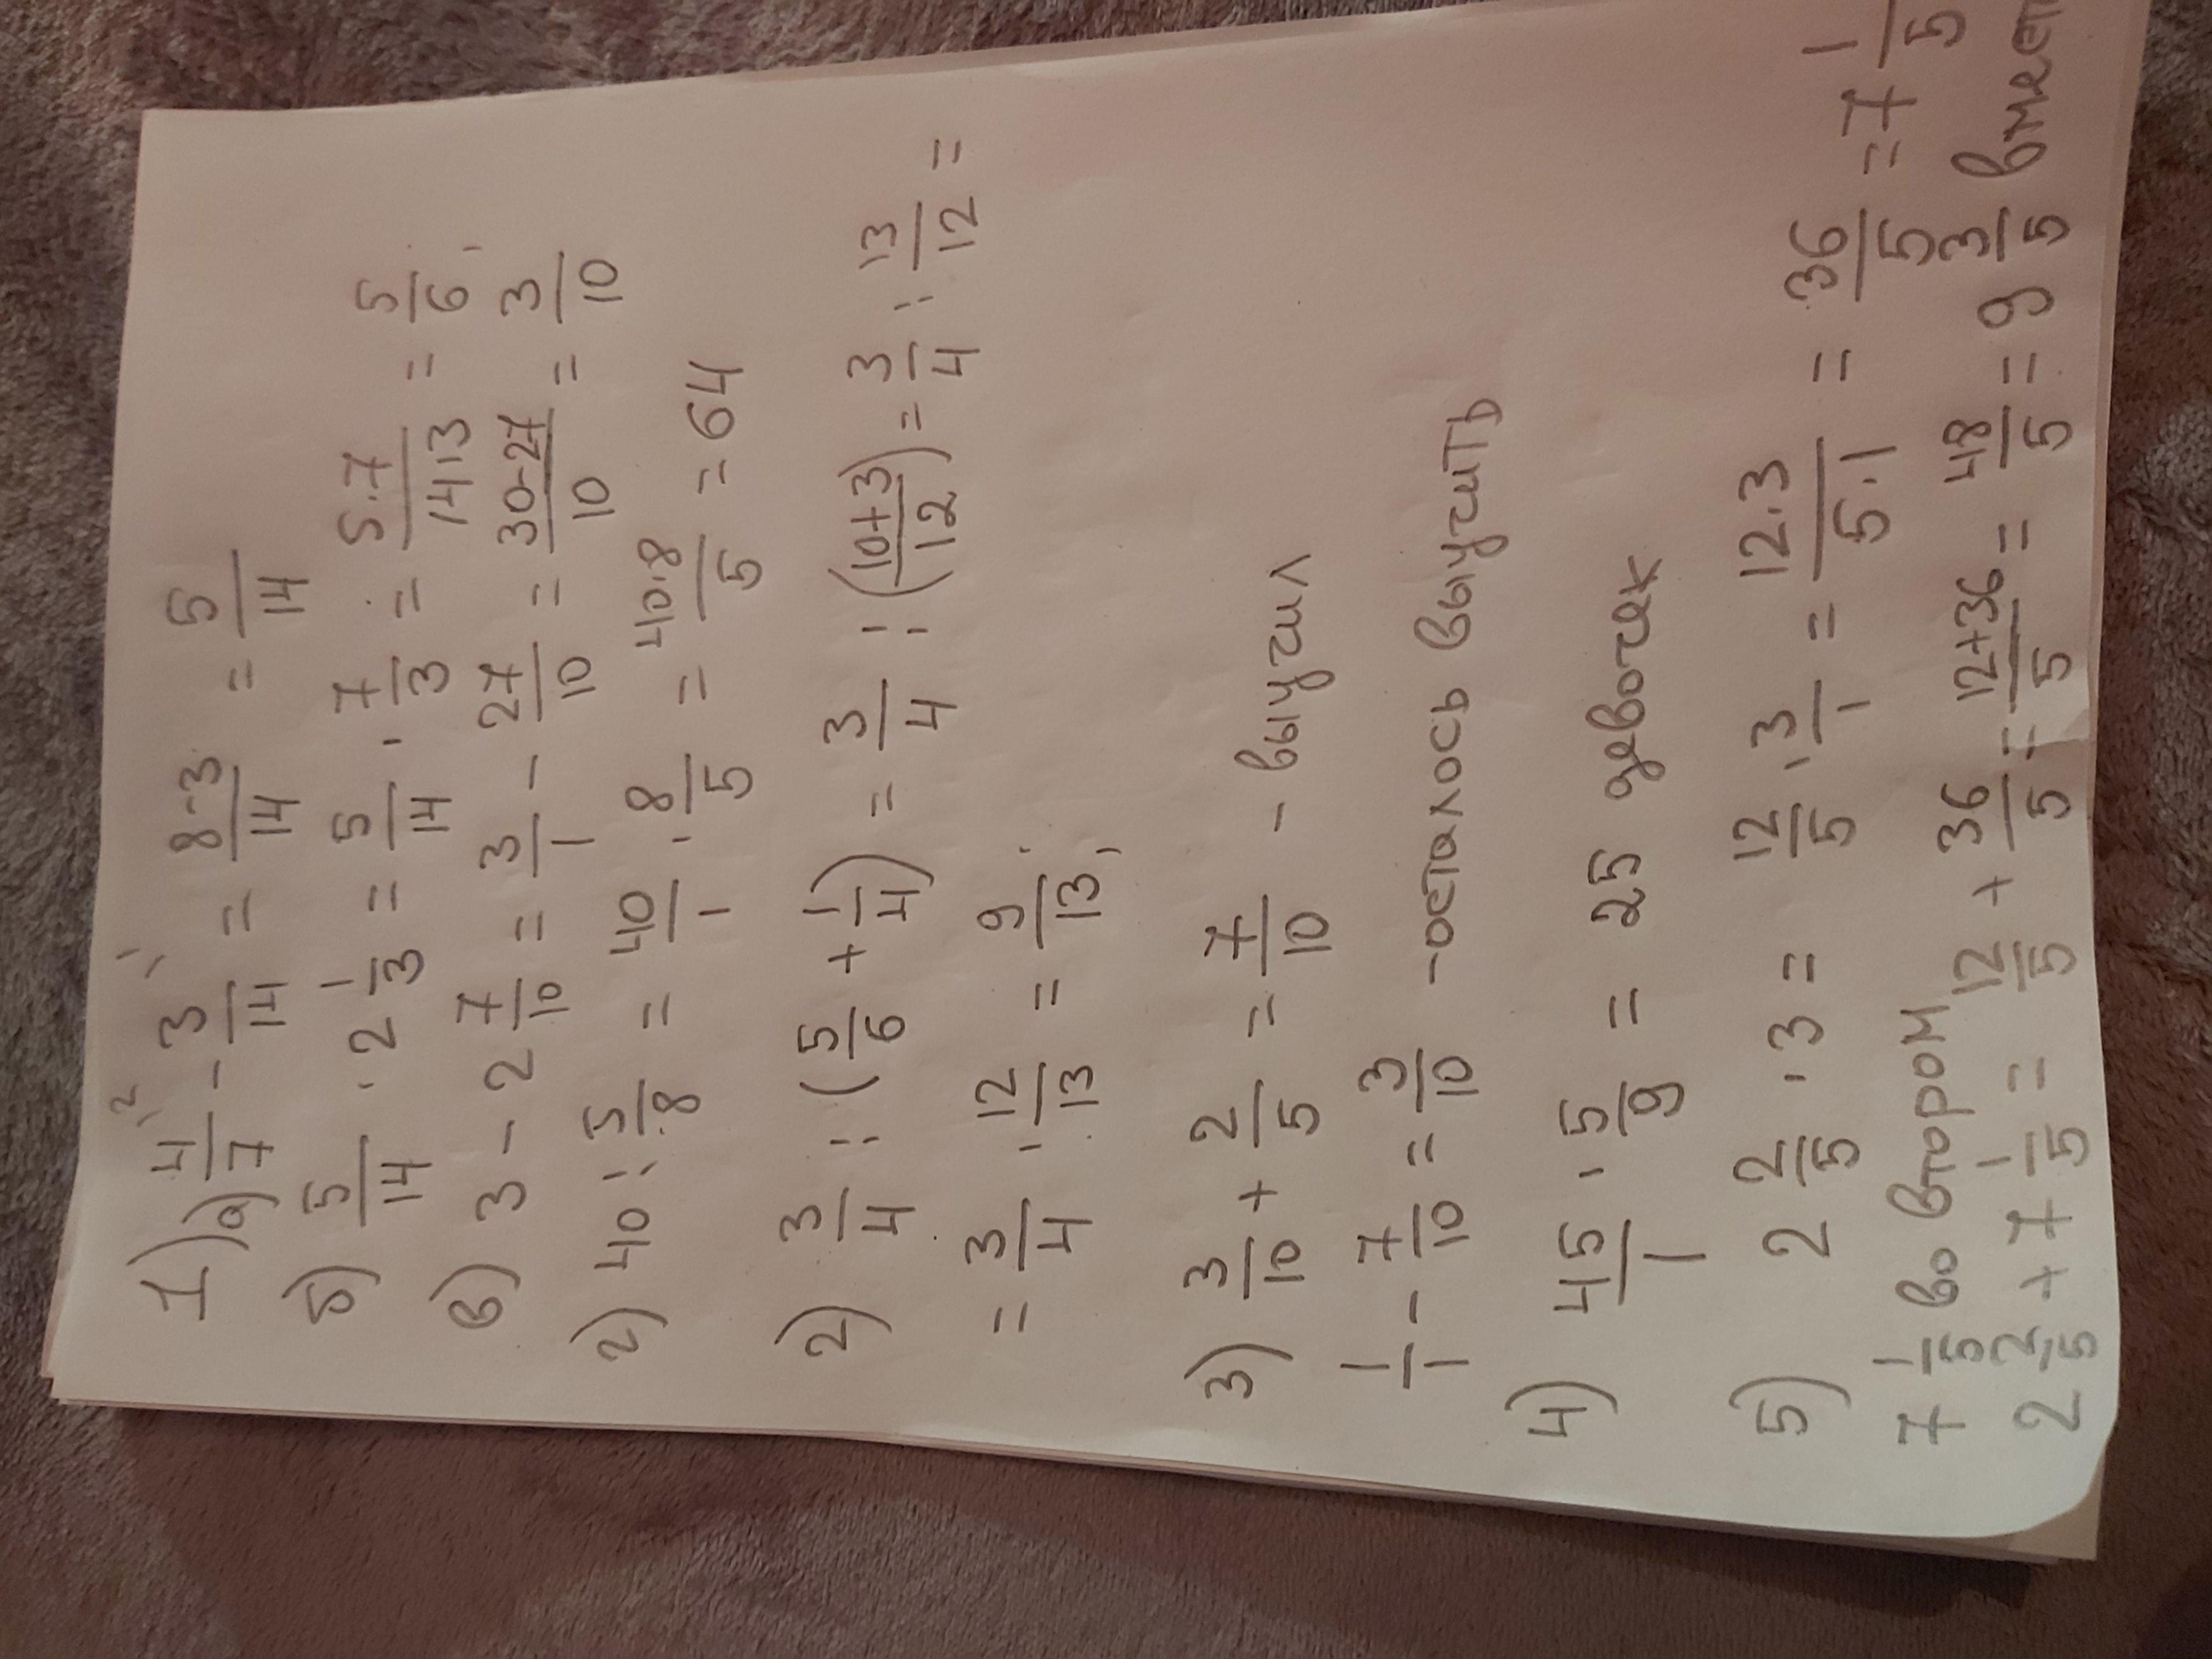 1) а) 4/7 \2 - 3/14 \1 = 8-3/14 = 5/14
б) 5/14 · 2 1/3 = 5/14 · 7/3 = 5·7/14·3 = 5/6;
в) 3 - 2 7/10 = 3/1 - 27/10 = 30-27/10 = 3/10
г) 40 : 5/8 = 40/1 · 8/5 = 40·8/5 = 64
2) 3/4 : (5/6 + 1/4) = 3/4 : (10+3/12) = 3/4 : 13/12 =
= 3/4 · 12/13 = 9/13;
3) 3/10 + 2/5 = 7/10 - выучил
1/1 - 7/10 = 3/10 - осталось выучить
4) 45/1 · 5/9 = 25 девочек
5) 2 2/5 · 3 = 12/5 · 3/1 = 12·3/5·1 = 36/5 = 7 1/5
7 1/5 во втором
2 2/5 + 7 1/5 = 12/5 + 36/5 = 12+36/5 = 48/5 = 9 3/5